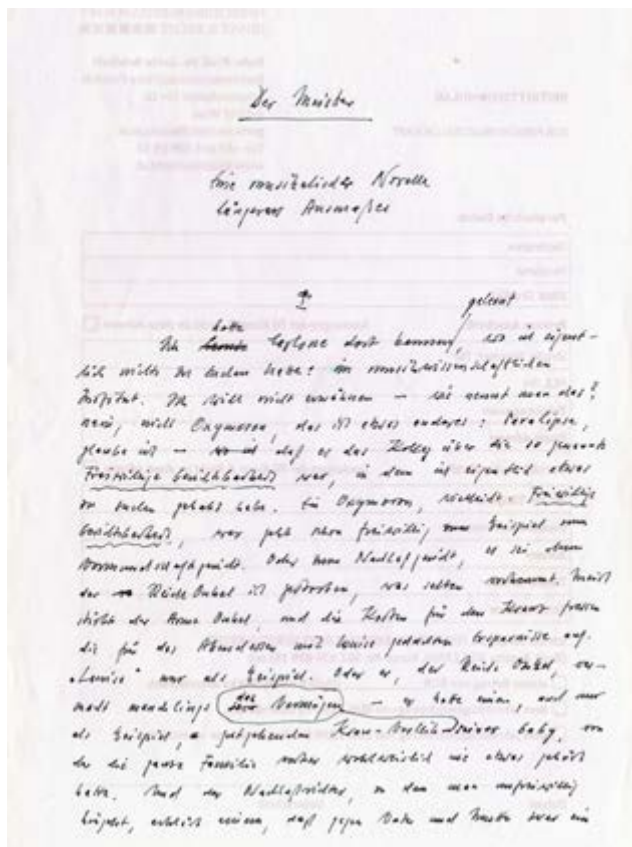 Der Meister
Eine musikalische Novelle
längeren Ausmaßes
I
gelernt
hatte
Ich lernte Carlone dort kennen, wo ich eigent-
lich nichts zu suchen hatte: im musikwissenschaftlichen
Institut. Ich will nicht erwähnen – wie nennt man das?
nein, nicht Oxymoron, das ist etwas anderes: Paralipse,
glaube ich – daß es das Kolleg über die so genannte
Freiwillige Gerichtsbarkeit war, in dem ich eigentlich etwas
zu suchen gehabt habe. Ein Oxymoron, vielleicht. Freiwillige
Gerichtsbarkeit, wer geht schon freiwillig zum Beispiel zum
Vormundschaftsgericht. Oder zum Nachlaßgericht, es sei denn
der Reiche Onkel ist gestorben, was selten vorkommt. Meist
stirbt der Arme Onkel, und die Kosten für den Kranz fressen
die für das Abendessen mit Louise gedachten Ersparnisse auf.
„Louise“ nur als Beispiel. Oder er, der Reiche Onkel, ver-
macht das Vermögen – er hatte einen, auch nur
als Beispiel, gutgehenden Kran-Verleih seiner baby, von
der die ganze Familie vorher nie etwas gehört
hatte. Und der Nachlaßrichter, zu dem man unfreiwillig
hingeht, erklärt einem, daß gegen Vater und Mutter zwar ein